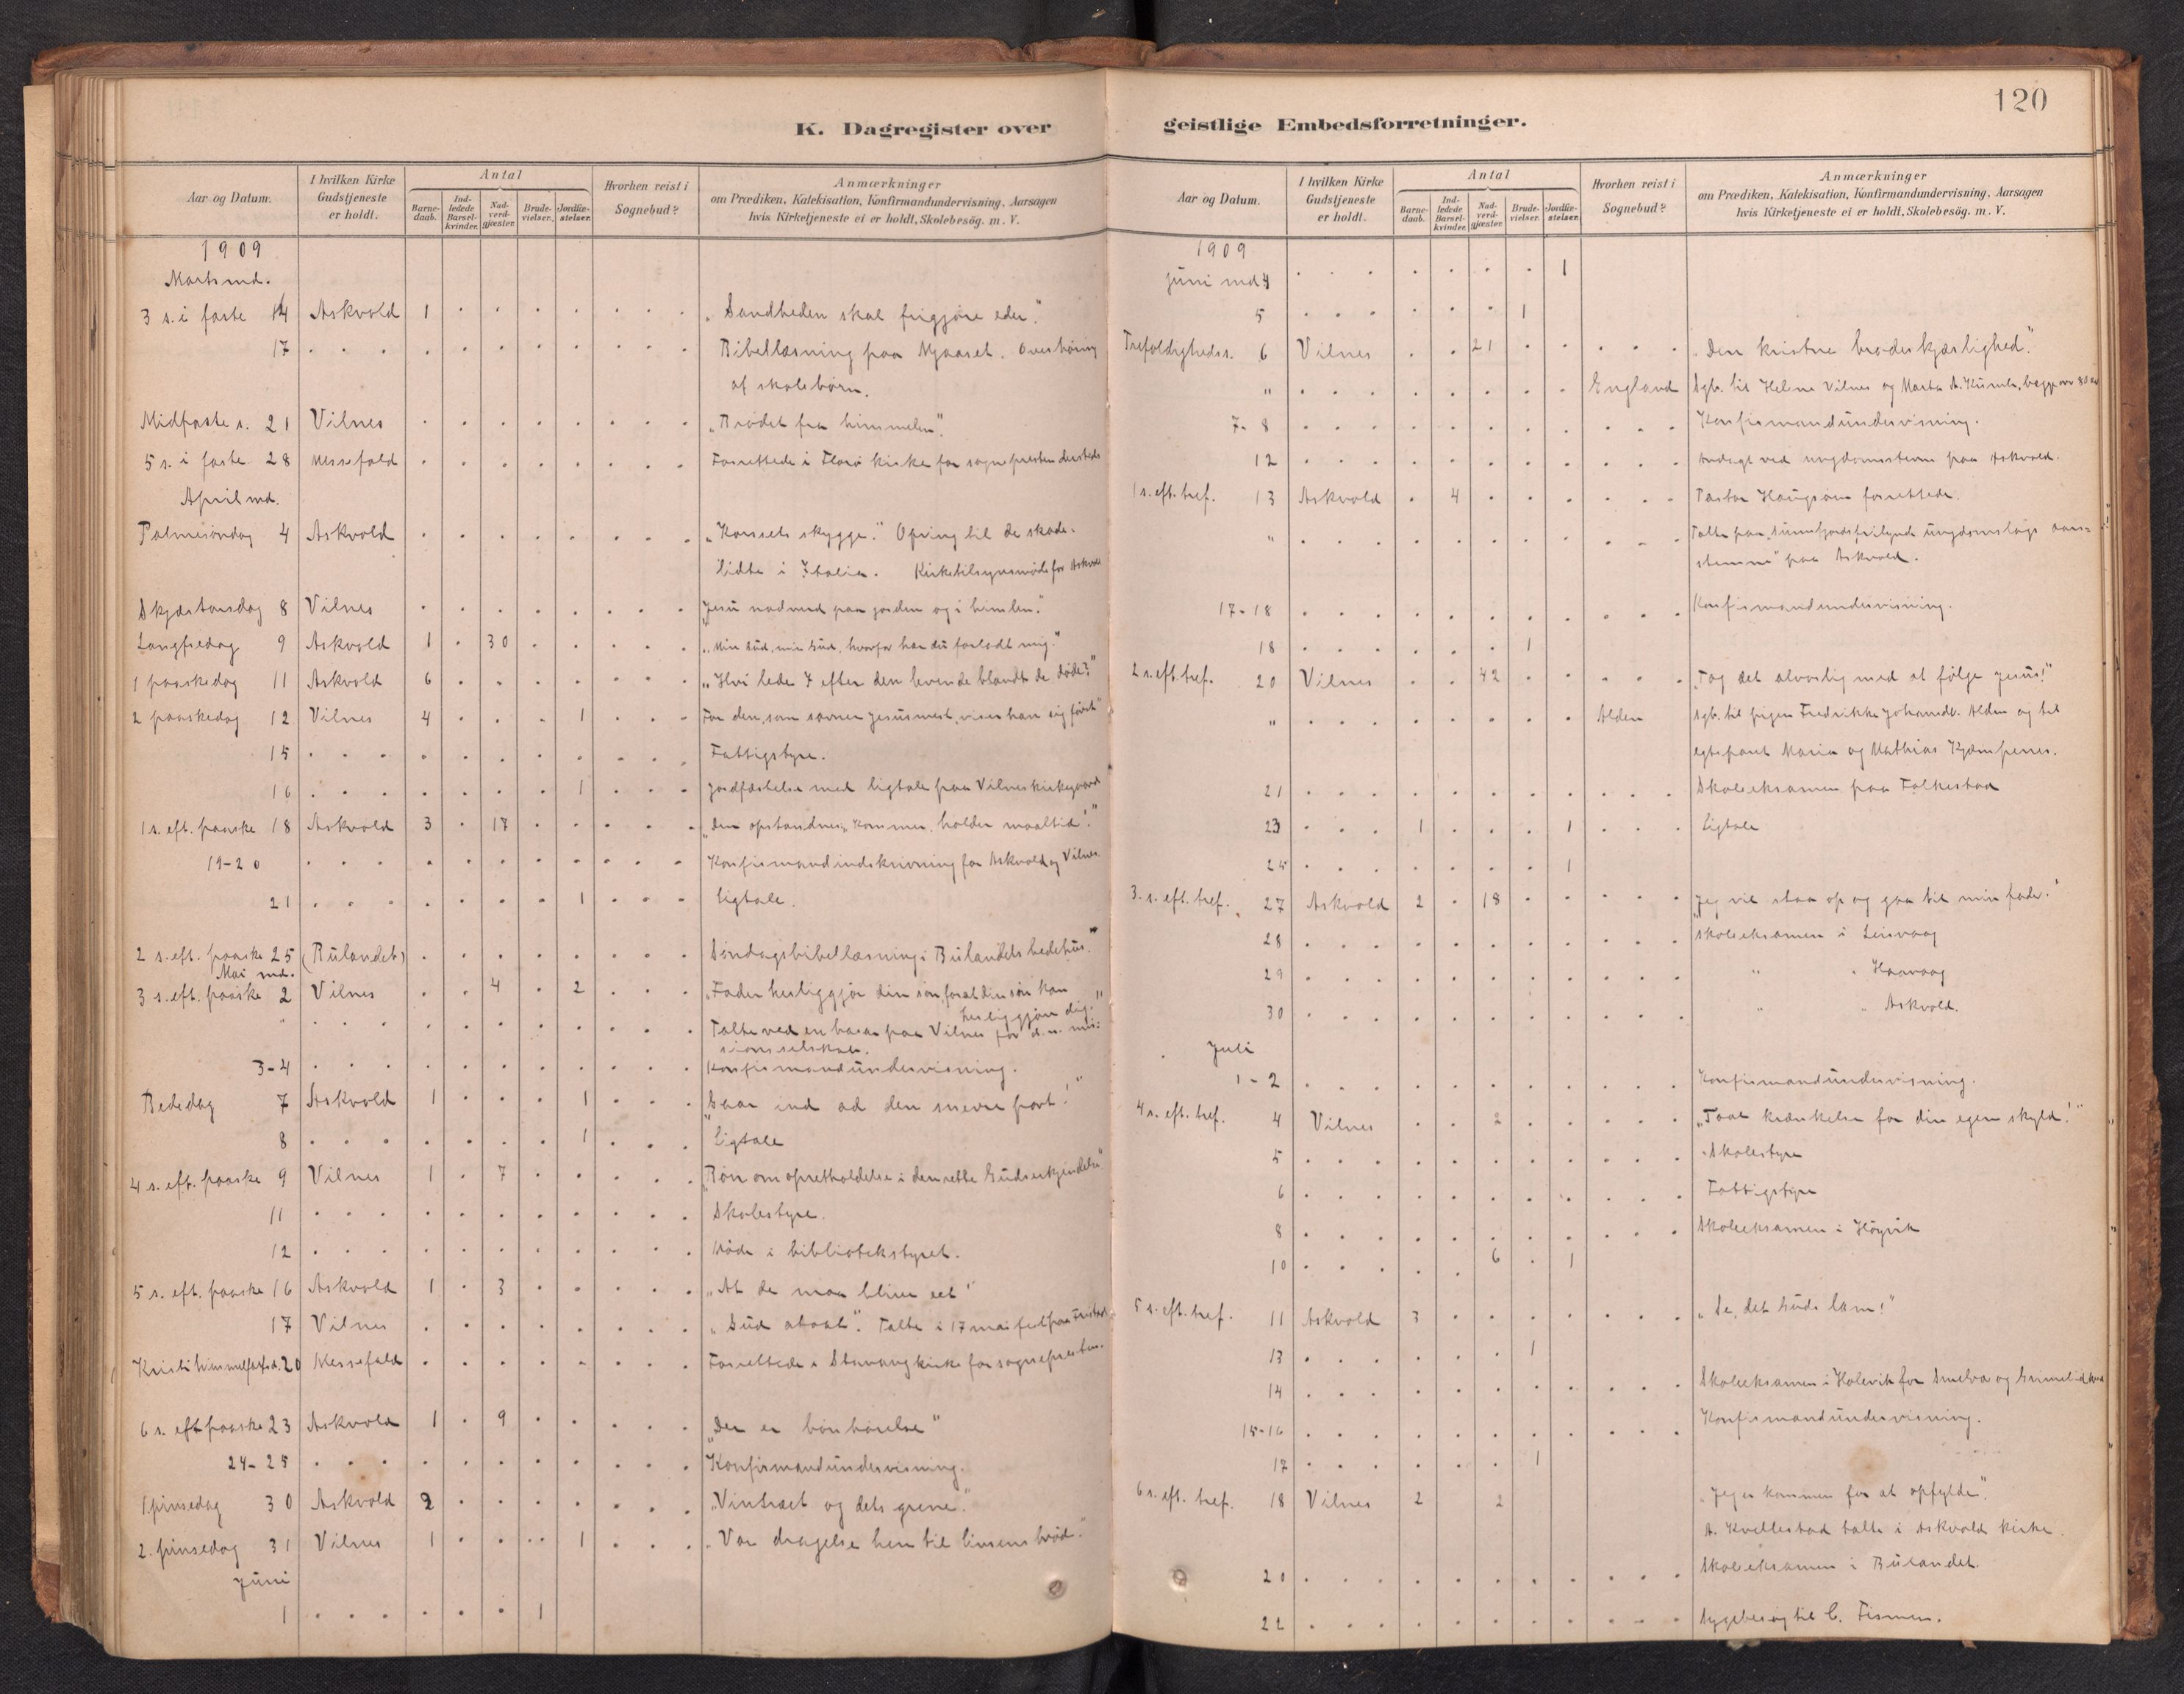 120
K. Dagregister over
Aar og Datum.
I hvilken Kirke Gudstjeneste er holdt.
Antal
Barne-daab.
Ind-ledede Barsel-kvinder.
Nad-verd-gjæster.
Brude-vielser.
Jordfæ-stelser.
Hvorhen reist i Sognebud?
Anmærkninger
om Prædiken, Katekisation, Konfirmandundervisning, Aarsagen
hvis Kirketjeneste ei er holdt, Skolebesög. m. V.
1909
Marts md.
3 s. i faste 14 Askvold 1 „Sandheden skal frigjøre eder."
17 Bibellæsning paa Overhøring
af skolebørn.
Midfaste s. 21 Vilnes „Brødet fra himmelen."
5 s. i faste 28 Messefald Forrettede i Florø kirke for sognepresten dersteds
April md.
Palmesøndag 4 Askvold „Korsets skygge." Ofring til de skade-
lidte i Italien. Kirketilsynsmøde for Askvold
Skjærtorsdag 8 Vilnes „Jesu nadverd paa jorden og i himlen."
Langfredag 9 Askvold 1 30 „Min Gud, min Gud, hvorfor har du forladt mig."
1 paaskedag 11 Askvold 6 „Hvi lede I efter den levende blandt de døde?"
2 paaskedag 12 Vilnes 4 1 For den, som savner Jesus mest, viser han sig først"
15 Fattigstyre.
16 1 Jordfæstelse med ligtale paa Vilnes kirkegaard
1 s. eft. paaske 18 Askvold 3 17 „Den opstandne kommer, holder maaltid."
19-20 Konfirmandindskrivning for Askvold og Vilnes.
21 1 Ligtale.
2 s. eft. paaske 25 (Bulandet) Søndagsbibellæsning i Bulandets bedehus."
Mai md.
3 s. eft. paaske 2 Vilnes 4 2 „Fader herliggjør din søn, forat din søn kan
herliggjøre dig."
" Talte ved en basar paa Vilnes for d. n. mis-
sionsselskab.
3-4 Konfirmandundervisning.
Bededag 7 Askvold 1 1 „Gaar ind ad den snevre port!"
8 1 Ligtale
4 s. eft. paaske 9 Vilnes 1 7 „Bøn om opretholdelse i den rette Gudserkjendelse"
11 Skolestyre.
12 Møde i bibliotekstyret.
5 s. eft. paaske 16 Askvold 1 3 „At de maa blive eet"
17 Vilnes „Gud Talte i 17 mai fest paa
Kristi himmelfartsd. 20 Messefald Forrettede i Stavang kirke for sognepresten.
6 s. eft paaske 23 Askvold 1 9 „Der er bønhørelse"
24-25 Konfirmandundervisning.
1 pinsedag 30 Askvold 2 „Vintræet og dets grene."
2. pinsedag 31 Vilnes 1 1 „Vor dragelse hen til livsens brød."
Juni
1 1
geistlige Embedsforretninger.
Aar og Datum.
I hvilken Kirke Gudstjeneste er holdt.
Antal
Barne-daab.
Ind-ledede Barsel-kvinder.
Nad-verd-gjæster.
Brude-vielser.
Jordfæ-stelser.
Hvorhen reist i Sognebud?
Anmærkninger
om Prædiken, Katekisation, Konfirmandundervisning, Aarsagen
hvis Kirketjeneste ei er holdt, Skolebesög. m. V.
1909
Juni md 4 1
5 1
Trefoldigheds s. 6 Vilnes 21 „Den kristne broderkjærlighed."
" England Sgb. til Helene Vilnes og Marta begge over 80 aar
7-8 Konfirmandundervisning.
12 Andagt ved ungdomsstevne paa Askvold.
1 s. eft. tref. 13 Askvold 4 Pastor Haugsøen forrettede.
" Talte paa „Sunnfjords frilynde ungdomslags aars-
stemne" paa Askvold.
17-18 Konfirmandundervisning.
18 1
2 s. eft. tref. 20 Vilnes 42 „Tag det alvorlig med at følge Jesus!"
" Alden Sgb. til pigen Fredrikke Johannesd. Alden og til
egteparet Maria og Mathias Kjempenes.
21 Skoleeksamen paa Folkestad
23 1 1 Ligtale
25 1
3. s. eft. tref. 27 Askvold 2 18 „Jeg vil staa op og gaa til min fader."
28 Skoleeksamen i Leirvaag
29 " " Haavaag
30 " " Askvold.
Juli
1-2 Konfirmandundervisning.
4 s. eft. tref. 4 Vilnes 2 „Taal krænkelse for din egen skyld!"
5 Skolestyre
6 Fattigstyre
8 Skoleeksamen i Høyvik
10 6 1
5 s. eft. tref. 11 Askvold 3 „Se, det Guds lam!"
13 1
14 Skoleeksamen i Holevik for og Grimelid
15-16 Konfirmandundervisning.
17 1
6 s. eft. tref. 18 Vilnes 2 2 „Jeg er kommen for at opfylde."
A. Kvellestad talte i Askvold kirke.
20 Skoleeksamen i Bulandet.
22 Sygebesøg til C. Fismen.